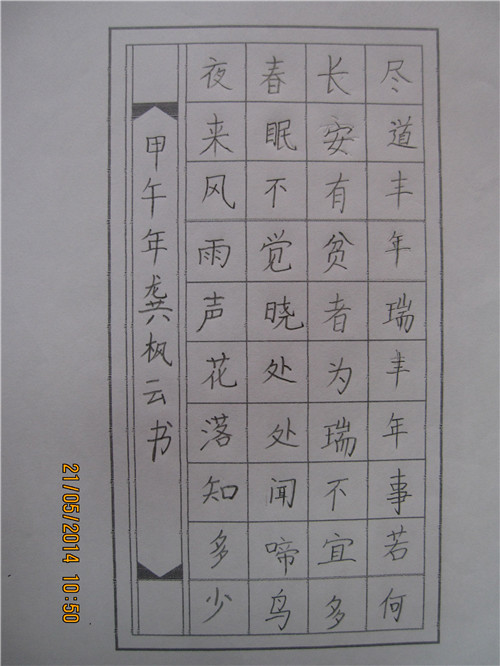 尽道丰年瑞丰年事若何
长安有贫者为瑞不宜多
春眠不觉晓处处闻啼鸟
夜来风雨声花落知多少
甲午年龚枫云书
21/05/2014 10:50